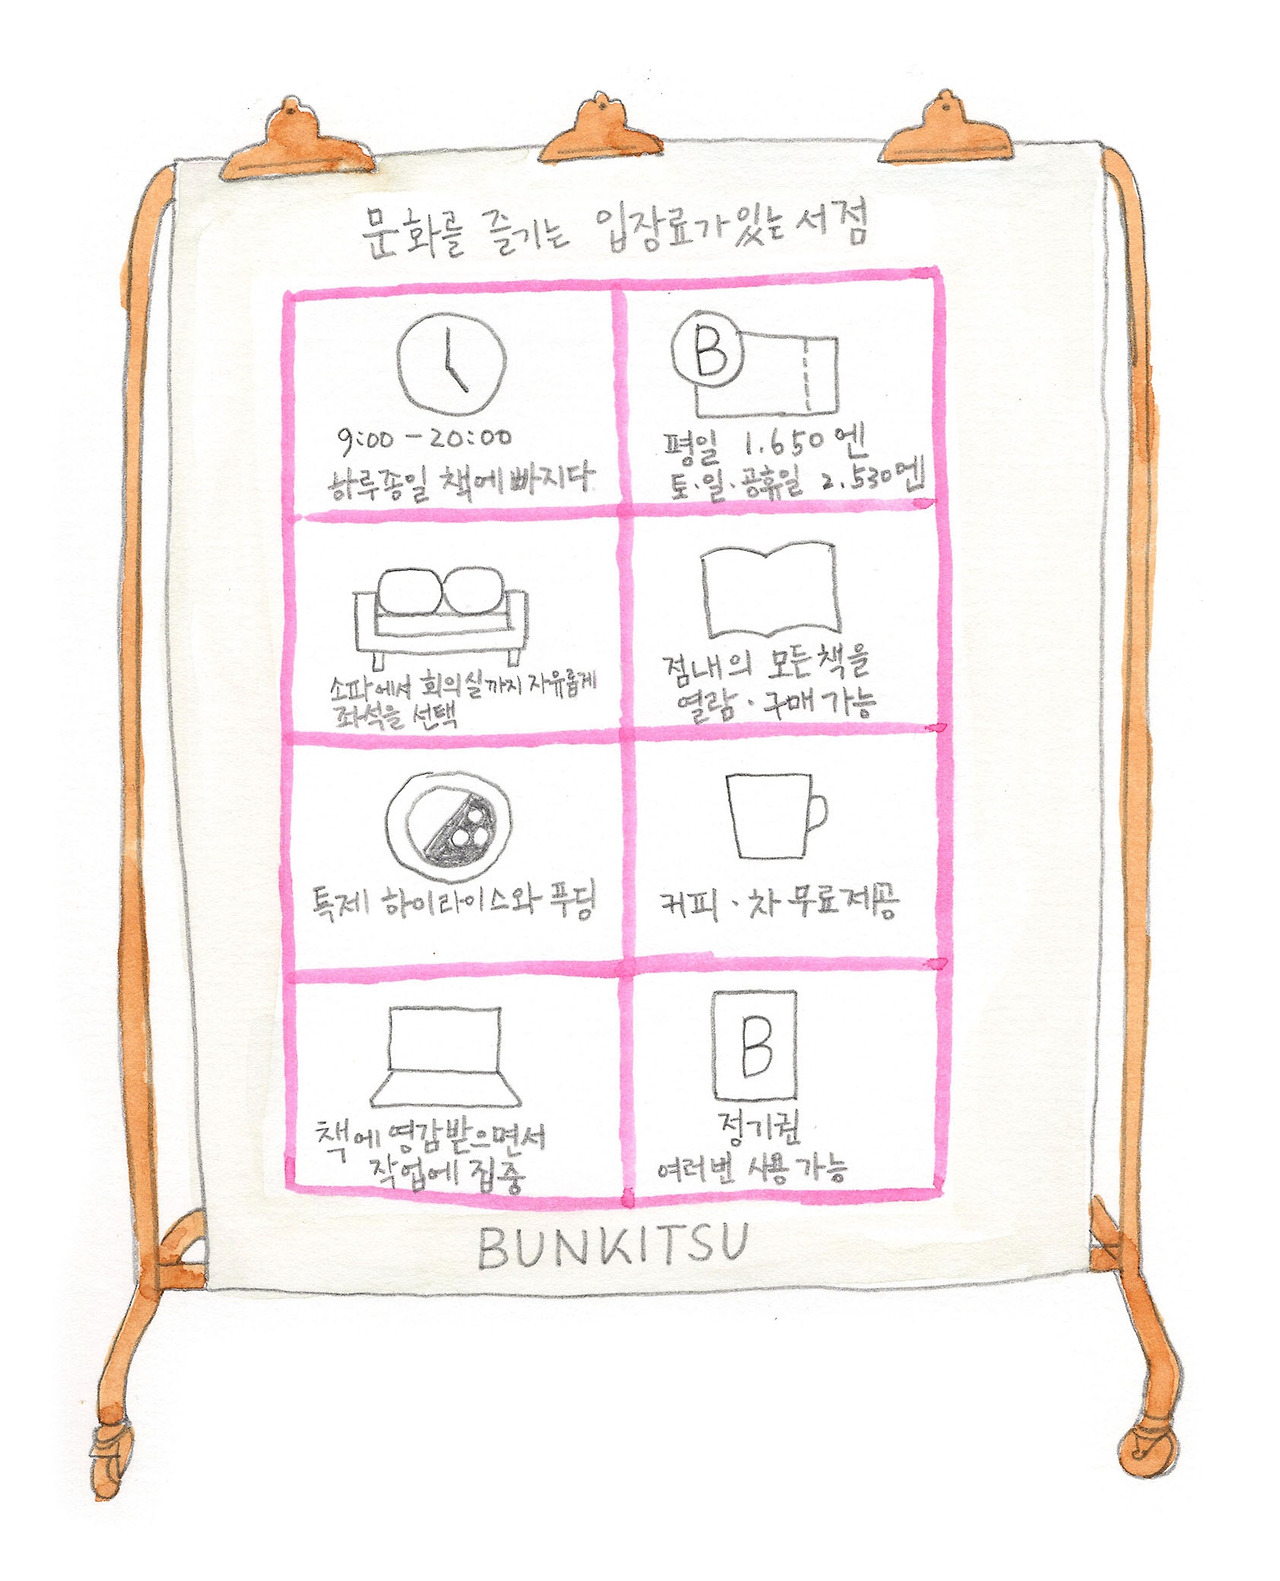 문화를 즐기는 입장료가있는 서점
9:00 - 20:00
하루종일 책에 빠지다
B
평일 1.650 엔
토·일·공휴일 2.530엔
소파에서 회의실까지 자유롭게
좌석을 선택
점내의 모든 책을
열람·구매 가능
특제 하이라이스와 푸딩
커피·차 무료제공
책에 영감받으면서
작업에 집중
B
정기권
여러번 사용 가능
BUNKITSU